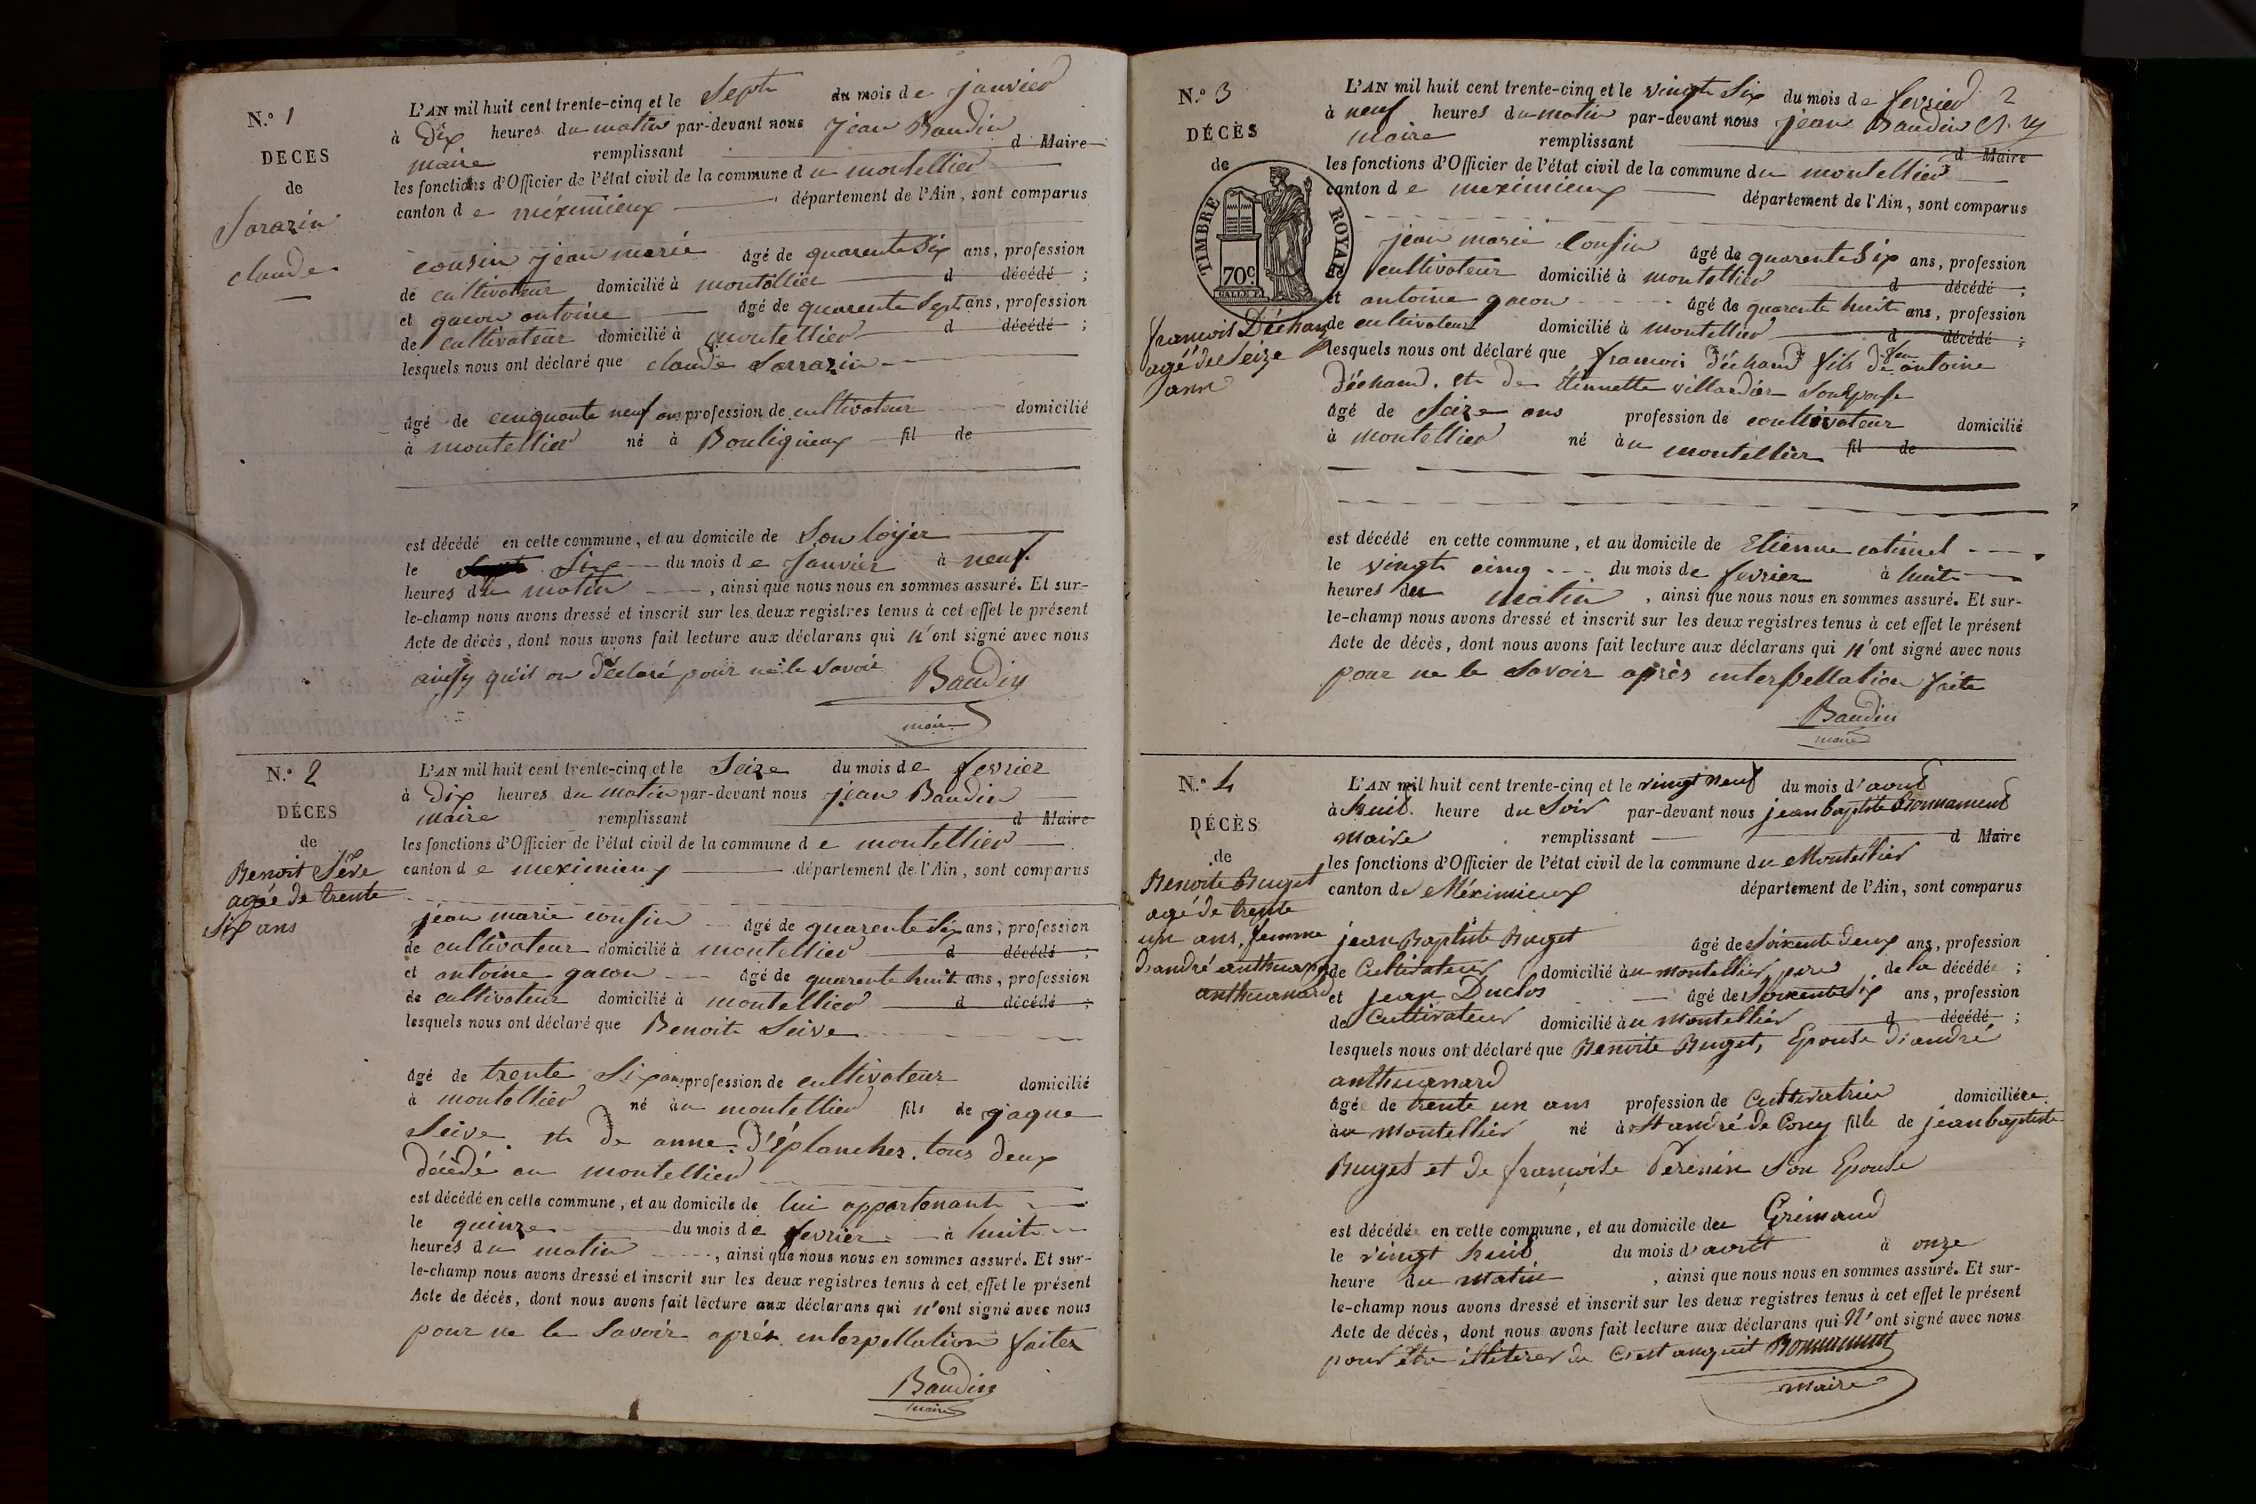 N.º 1
DECES
de
Sarazin
claude
L'AN mil huit cent trente-cinq et le Sept du mois de janvier
à Dix heures du matin par-devant nous jean Baudin
maire remplissant d Maire
les fonctions d'Officier de l'état civil de la commune du montellier
canton de méximieux département de l'Ain, sont comparus
cousin jean marie âgé de quarente Six ans, profession
de cultivateur domicilié à montellier d décédé ;
et gacon antoine âgé de quarente Sept ans, profession
de cultivateur domicilié à montellier d décédé ;
lesquels nous ont déclaré que claude Sarrazin
âgé de cinquante neuf ans profession de cultivateur domicilié
à montellier né à Bouligneux fil de
est décédé en cette commune, et au domicile de Son loyer
le Six du mois de Janvier à neuf
heures du matin, ainsi que nous nous en sommes assuré. Et sur-
le-champ nous avons dressé et inscrit sur les deux registres tenus à cet effet le présent
Acte de décès, dont nous avons fait lecture aux déclarans qui n'ont signé avec nous
ainsy qu'il on déclaré pour ne le savoir Baudin
maire
N.º 2
DÉCES
de
Benoit Séve
agé de trente
Six ans
L'AN mil huit cent trente-cinq et le Seize du mois de fevrier
à Dix heures du matin par-devant nous jean Baudin
maire remplissant d Maire
les fonctions d'Officier de l'état civil de la commune de montellier
canton de meximieux département de l'Ain, sont comparus
jean marie cousin âgé de quarente Six ans, profession
de cultivateur domicilié à montellier d décédé ;
et antoine gacon âgé de quarente huit ans, profession
de cultivateur domicilié à montellier d décédé ;
lesquels nous ont déclaré que Benoit Seive
âgé de trente Six ans profession de cultivateur domicilié
à montellier né au montellier fils de jaque
Seive et de anne D'éplanches. tous deux
décédé au montellier
est décédé en cette commune, et au domicile de lui appartenant
le quinze du mois de fevrier à huit
heures du matin, ainsi que nous nous en sommes assuré. Et sur-
le-champ nous avons dressé et inscrit sur les deux registres tenus à cet effet le présent
Acte de décès, dont nous avons fait lecture aux déclarans qui n'ont signé avec nous
pour ne le Savoir après interpellation faites
Baudin
maire
N.º 3
DÉCÈS
de
TIMBRE ROYAL
70c
françois Déchand
agé de Seize
ans
L'AN mil huit cent trente-cinq et le vingt Six du mois de fevrier 2
à neuf heures du matin par-devant nous jean Baudin
maire remplissant d Maire
les fonctions d'Officier de l'état civil de la commune du montellier
canton de meximieux département de l'Ain, sont comparus
jean marie Cousin âgé de quarente Six ans, profession
cultivateur domicilié à montellier d décédé ;
et antoine gacon âgé de quarente huit ans, profession
de cultivateur domicilié à montellier d décédé ;
lesquels nous ont déclaré que francois Déchand fils de feu antoine
Déchand. et de Etiennette villardier Son Epouse
âgé de Seize ans profession de coultivateur domicilié
à montellier né au montellier fil de
est décédé en cette commune, et au domicile de Etienne catinel
le vingt cinq du mois de fevrier à huit
heures du matin, ainsi que nous nous en sommes assuré. Et sur-
le-champ nous avons dressé et inscrit sur les deux registres tenus à cet effet le présent
Acte de décès, dont nous avons fait lecture aux déclarans qui n'ont signé avec nous
pour ne le Savoir après interpellation faite
Baudin
maire
N.º 4
DÉCÈS
de
Benoite Buget
agé de trente
un ans, femme
d'andré anthuanard
anthuanard
L'AN mil huit cent trente-cinq et le vingt neuf du mois d'avril
à huit heure du Soir par-devant nous jean baptiste Bonnament
maire remplissant d Maire
les fonctions d'Officier de l'état civil de la commune du Montellier
canton de Méximieux département de l'Ain, sont comparus
jean Baptiste Buget âgé de Soixente deux ans, profession
de Cultivateur domicilié au montellier pere de la décédée ;
et jean Duclos âgé de Soixente Six ans, profession
de Cultivateur domicilié au Montellier d décédé ;
lesquels nous ont déclaré que Benoite Buget, Epouse d'andré
anthuanard
âgée de trente un ans profession de Cultivatrice domiciliée
au montellier né à St andré de Corcy fille de jean baptiste
Buget et de françoise Perénin Son Epouse
est décédée en cette commune, et au domicile du Grimaud
le vingt huit du mois d'avril à onze
heure du matin, ainsi que nous nous en sommes assuré. Et sur-
le-champ nous avons dressé et inscrit sur les deux registres tenus à cet effet le présent
Acte de décès, dont nous avons fait lecture aux déclarans qui N'ont signé avec nous
pour être illiterer de Bonnament
maire